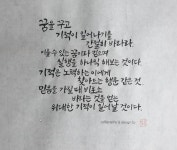 꿈을 꾸고
기적이 일어나기를
간절히 바라라.
이룰수 있는 꿈이라 믿으며
실행을 하나씩 해보는 것이다.
기적은 노력하는 이에게
찾아오는 행운 같은 것.
믿음을 가질 때 비로소
바라는 것을 얻는
위대한 기적이 일어날 것이다.
calligraphy & design by